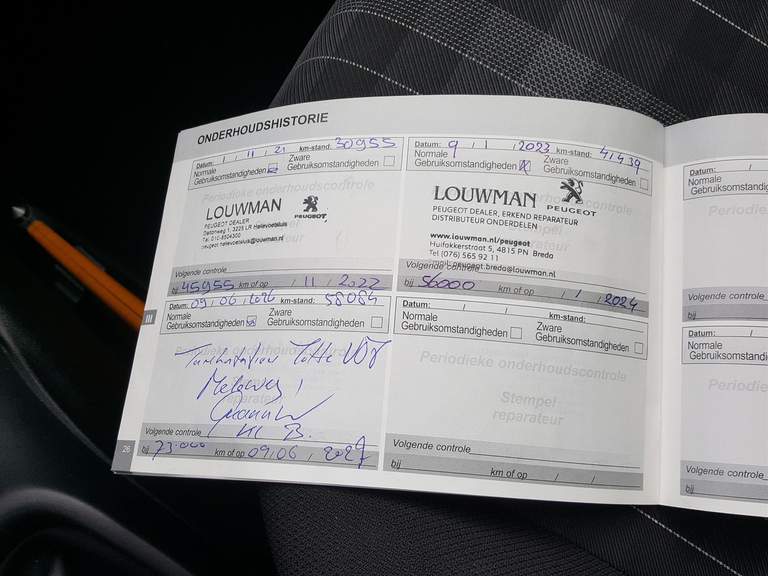 ONDERHOUDSHISTORIE
Datum: / 11 / 21 km-stand: 30955
Normale Gebruiksomstandigheden
Zware Gebruiksomstandigheden
Periodieke onderhoudscontrole
LOUWMAN
PEUGEOT
PEUGEOT DEALER
3225 LR Hellevoetsluis
Tel. 010-8504300
peugeot.hellevoetsluis@louwman.nl
Volgende controle
bij 45955 km of op / 11 / 2022
Datum: 9 / 1 / 2023 km-stand: 41439
Normale Gebruiksomstandigheden
Zware Gebruiksomstandigheden
LOUWMAN
PEUGEOT
PEUGEOT DEALER, ERKEND REPARATEUR
DISTRIBUTEUR ONDERDELEN
www.louwman.nl/peugeot
Huifakkerstraat 5, 4815 PN Breda
Tel (076) 565 92 11
mail: peugeot.breda@louwman.nl
Volgende controle
bij 56000 km of op / 1 / 2024
Datum: 09 / 06 / 2026 km-stand: 58084
Normale Gebruiksomstandigheden
Zware Gebruiksomstandigheden
Volgende controle
bij 73.000 km of op 09 / 06 / 2027
Datum: / / km-stand:
Normale Gebruiksomstandigheden
Zware Gebruiksomstandigheden
Periodieke onderhoudscontrole
Stempel
reparateur
Volgende controle
bij km of op / /
III
26
Datum: /
Normale
Gebruiksomstandig
Periodi
Volgende controle
bij
Datum: /
Normale
Gebruiksomstandig
Periodi
Volgende controle
bij